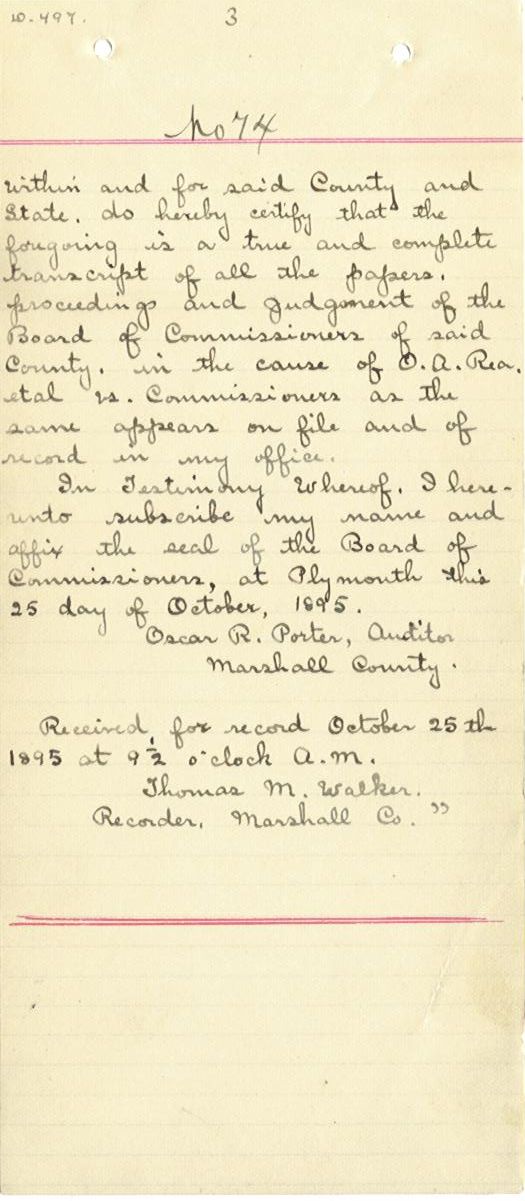 W-497.
3
No 74
within and for said County and
State. do hereby certify that the
foregoing is a true and complete
transcript of all the papers.
proceedings and Judgment of the
Board of Commissioners of said
County. in the cause of O.A. Rea.
etal vs. Commissioners as the
same appears on file and of
record in my office.
In Testimony Whereof. I here-
unto subscribe my name and
affix the seal of the Board of
Commissioners, at Plymouth this
25 day of October, 1895.
Oscar R. Porter, Auditor
Marshall County.
Received, for record October 25th
1895 at 9 1/2 o'clock A.M.
Thomas M. Walker.
Recorder, Marshall Co. "